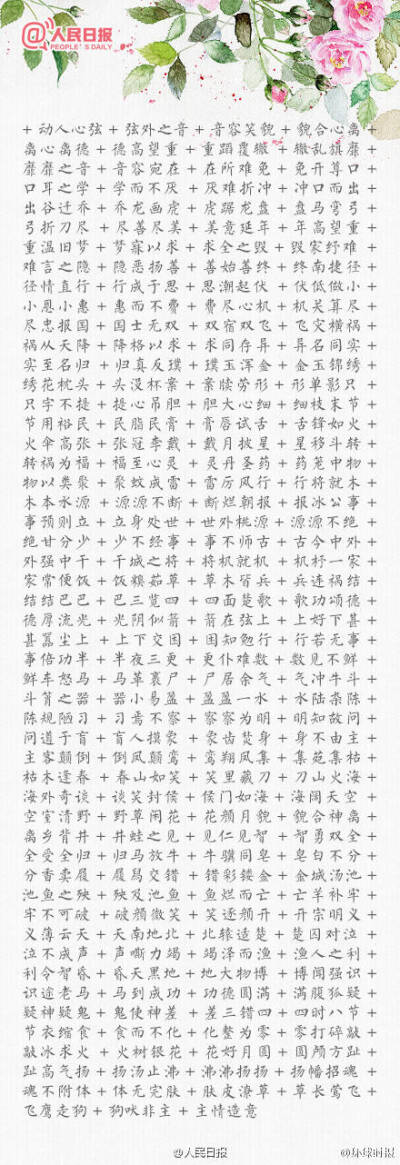 人民日报
PEOPLE'S DAILY
+ 动人心弦 + 弦外之音 + 音容笑貌 + 貌合心离 +
离心离德 + 德高望重 + 重蹈覆辙 + 辙乱旗靡 +
靡靡之音 + 音容宛在 + 在所难免 + 免开尊口 +
口耳之学 + 学而不厌 + 厌难折冲 + 冲口而出 +
出谷迁乔 + 乔龙画虎 + 虎踞龙盘 + 盘马弯弓 +
弓折刀尽 + 尽善尽美 + 美意延年 + 年高望重 +
重温旧梦 + 梦寐以求 + 求全之毁 + 毁家纾难 +
难言之隐 + 隐恶扬善 + 善始善终 + 终南捷径 +
径情直行 + 行成于思 + 思潮起伏 + 伏低做小 +
小恩小惠 + 惠而不费 + 费尽心机 + 机关算尽 +
尽忠报国 + 国士无双 + 双宿双飞 + 飞灾横祸 +
祸从天降 + 降格以求 + 求同存异 + 异名同实 +
实至名归 + 归真反璞 + 璞玉浑金 + 金玉锦绣 +
绣花枕头 + 头没杯案 + 案牍劳形 + 形单影只 +
只字不提 + 提心吊胆 + 胆大心细 + 细枝末节 +
节用裕民 + 民脂民膏 + 膏唇试舌 + 舌锋如火 +
火伞高张 + 张冠李戴 + 戴月披星 + 星移斗转 +
转祸为福 + 福至心灵 + 灵丹圣药 + 药笼中物 +
物以类聚 + 聚蚊成雷 + 雷厉风行 + 行将就木 +
木本水源 + 源源不断 + 断烂朝报 + 报冰公事 +
事预则立 + 立身处世 + 世外桃源 + 源源不绝 +
绝甘分少 + 少不经事 + 事不师古 + 古今中外 +
外强中干 + 干城之将 + 将机就机 + 机杼一家 +
家常便饭 + 饭糗茹草 + 草木皆兵 + 兵连祸结 +
结结巴巴 + 巴三览四 + 四面楚歌 + 歌功颂德 +
德厚流光 + 光阴似箭 + 箭在弦上 + 上好下甚 +
甚嚣尘上 + 上下交困 + 困知勉行 + 行若无事 +
事倍功半 + 半夜三更 + 更仆难数 + 数见不鲜 +
鲜车怒马 + 马革裹尸 + 尸居余气 + 气冲牛斗 +
斗筲之器 + 器小易盈 + 盈盈一水 + 水陆杂陈 +
陈规陋习 + 习焉不察 + 察察为明 + 明知故问 +
问道于盲 + 盲人摸象 + 象齿焚身 + 身不由主 +
主客颠倒 + 倒凤颠鸾 + 鸾翔凤集 + 集苑集枯 +
枯木逢春 + 春山如笑 + 笑里藏刀 + 刀山火海 +
海外奇谈 + 谈笑封侯 + 侯门如海 + 海阔天空 +
空室清野 + 野草闲花 + 花颜月貌 + 貌合神离 +
离乡背井 + 井蛙之见 + 见仁见智 + 智勇双全 +
全受全归 + 归马放牛 + 牛骥同皂 + 皂白不分 +
分香卖履 + 履舄交错 + 错彩镂金 + 金城汤池 +
池鱼之殃 + 殃及池鱼 + 鱼烂而亡 + 亡羊补牢 +
牢不可破 + 破颜微笑 + 笑逐颜开 + 开宗明义 +
义薄云天 + 天南地北 + 北辕适楚 + 楚囚对泣 +
泣不成声 + 声嘶力竭 + 竭泽而渔 + 渔人之利 +
利令智昏 + 昏天黑地 + 地大物博 + 博闻强识 +
识途老马 + 马到成功 + 功德圆满 + 满腹狐疑 +
疑神疑鬼 + 鬼使神差 + 差三错四 + 四时八节 +
节衣缩食 + 食而不化 + 化整为零 + 零打碎敲 +
敲冰求火 + 火树银花 + 花好月圆 + 圆颅方趾 +
趾高气扬 + 扬汤止沸 + 沸沸扬扬 + 扬幡招魂 +
魂不附体 + 体无完肤 + 肤皮潦草 + 草长莺飞 +
飞鹰走狗 + 狗吠非主 + 主情造意
@人民日报
@环球时报